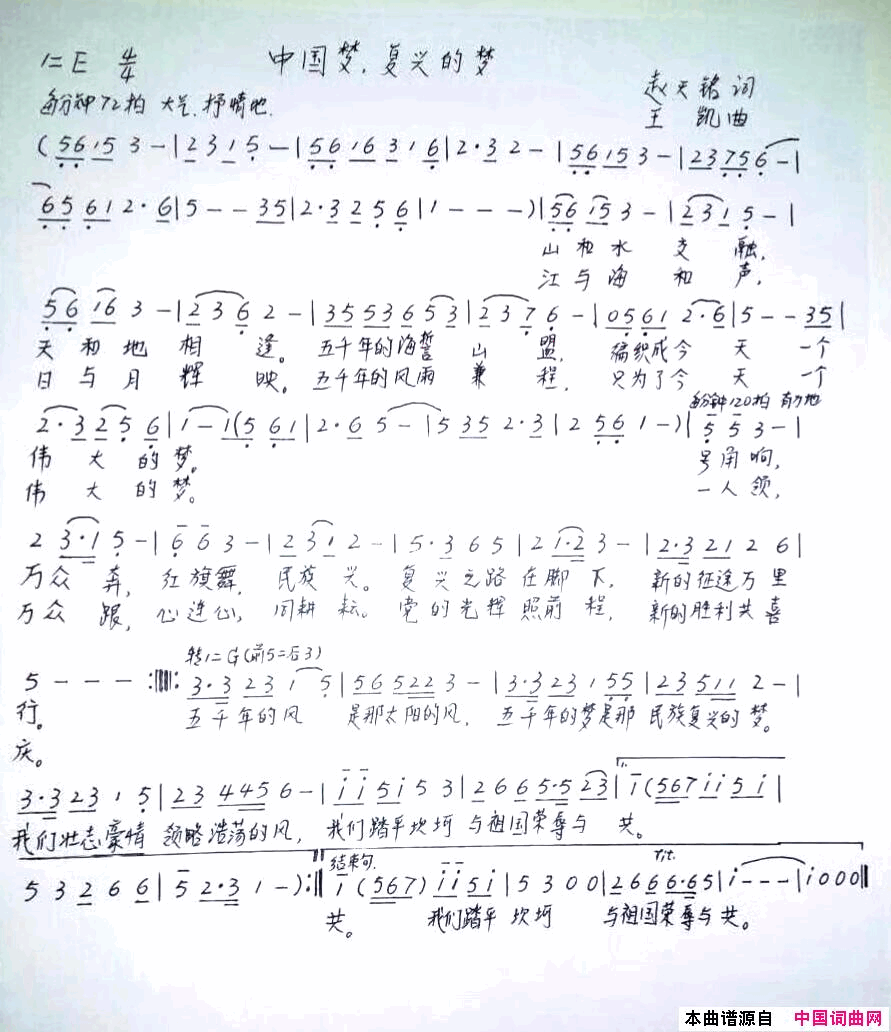 1=E 4/4 中国梦.复兴的梦
赵天铭词
每分钟72拍 大气.抒情地.
王 凯曲
(5615 3 - | 2 3 1 5 - | 56 16 3 1 6 | 2·3 2 - | 5615 3 - | 23756 - |
6561 2·6 | 5 - - 35 | 2·3 2 5 6 | 1 - - - ) | 56 15 3 - | 2 3 1 5 - |
山和水 交 融,
江与海 和 声,
56 16 3 - | 2 3 6 2 - | 35 53 6 53 | 2 3 7 6 - | 0561 2·6 | 5 - - 35 |
天和地 相 逢。 五千年的海誓 山 盟, 编织成今 天 一个
日与月 辉 映。 五千年的风雨 兼 程, 只为了今 天 一个
每分钟120拍 有力地
2·3 2 5 6 | 1 - 1 (5 61 | 2·6 5 - | 5 35 2·3 | 2 56 1 - ) | 5 5 3 - |
伟 大 的 梦。 号角响,
伟 大 的 梦。 一人领,
2 3·1 5 - | 6 6 3 - | 2 3 1 2 - | 5·3 6 5 | 2 1·2 3 - | 2·3 21 2 6 |
万众 奔, 红旗舞, 民族 兴。 复兴之路在脚 下, 新的征途万里
万众 跟, 心连心, 同耕 耘。 党的光辉照前 程, 新的胜利共喜
转1=G(前5=后3)
5 - - - :||: 3·3 23 1 5 | 56 522 3 - | 3·3 23 1 55 | 23 511 2 - |
行。 五千年的风 是那太阳的风, 五千年的梦是那 民族复兴的梦。
庆。
3·3 23 1 5 | 23 445 6 - | i i 5 i 5 3 | 2 6 6 5·5 23 | 1. i (567 i i 5 i |
我们壮志豪情 领略浩荡的风, 我们踏平坎坷 与祖国荣辱与 共。
5 3 2 6 6 | 5 2·3 1 - ) :|| 结束句. i (567) i i 5 i | 5 3 0 0 | rit. 2 6 6 6·6 5 | i - - - | i 0 0 0 ||
共。 我们踏平 坎坷 与祖国荣辱与 共。
本曲谱源自 中国词曲网